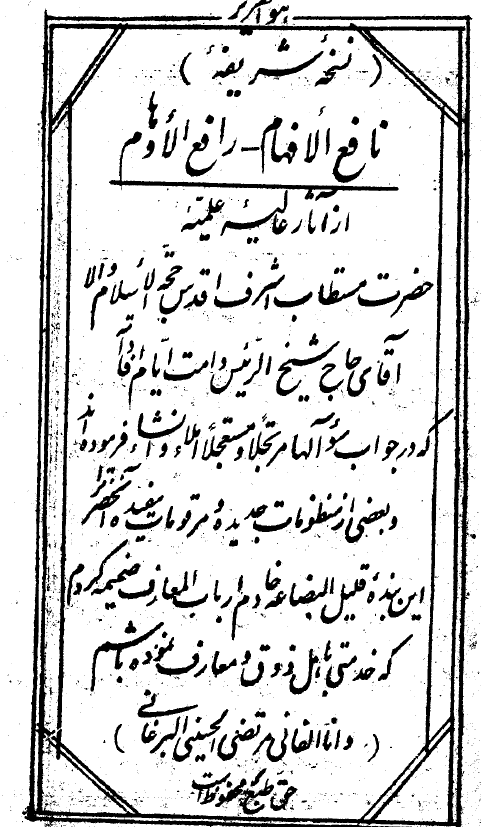 هو العزیز
(نسخهٔ شریفهٔ)
نافع الأفهام - رافع الأوهام
از آثار عالیهٔ علمیّهٔ
حضرت مستطاب اشرف اقدس حجّة الإسلام والا
آقای حاج شیخ الرّئیس دامت ایّام افاداته
که در جواب سؤآلها مرتجلاً و مستعجلاً املاء و انشاء فرموده اند
و بعضی از منظومات جدیده و مرقومات مفیدهٔ آنحضرت را
این بندهٔ قلیل البضاعه خادم ارباب المعارف ضمیمه کردم
که خدمتی باهل ذوق و معارف نموده باشم
(و انا الفانی مرتضی الحسینی البرغانی)
حق طبع محفوظ است